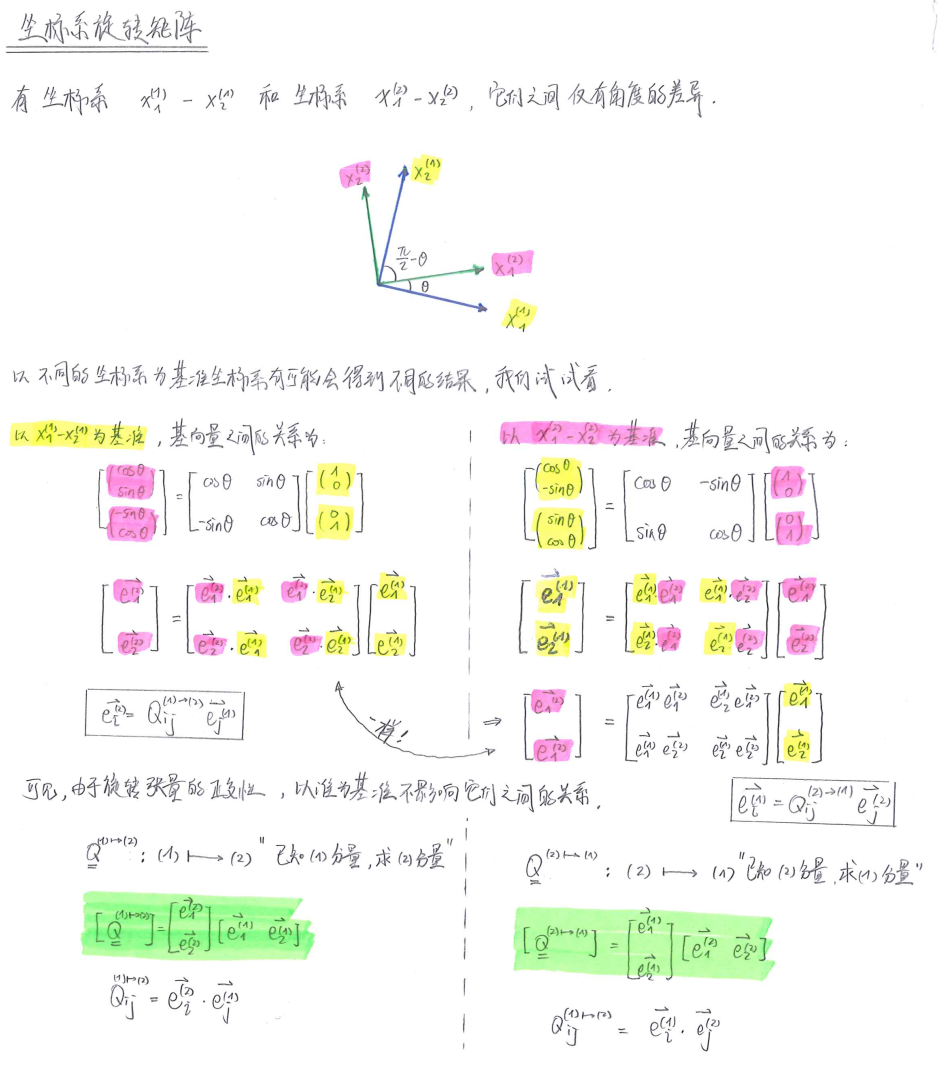 坐标系旋转矩阵
有坐标系 x₁⁽¹⁾ - x₂⁽¹⁾ 和坐标系 x₁⁽²⁾ - x₂⁽²⁾, 它们之间仅有角度的差异.
x₂⁽²⁾ x₂⁽¹⁾
π/2 - θ
x₁⁽²⁾
θ
x₁⁽¹⁾
以不同的坐标系为基准坐标系有可能会得到不同的结果, 我们试试看.
以 x₁⁽¹⁾-x₂⁽¹⁾ 为基准, 基向量之间的关系为:
[(cosθ sinθ) (-sinθ cosθ)] = [cosθ sinθ -sinθ cosθ] [(1 0) (0 1)]
[e₁⃗⁽²⁾ e₂⃗⁽²⁾] = [e₁⃗⁽²⁾·e₁⃗⁽¹⁾ e₁⃗⁽²⁾·e₂⃗⁽¹⁾ e₂⃗⁽²⁾·e₁⃗⁽¹⁾ e₂⃗⁽²⁾·e₂⃗⁽¹⁾] [e₁⃗⁽¹⁾ e₂⃗⁽¹⁾]
eᵢ⃗⁽²⁾ = Qᵢⱼ⁽¹⁾→⁽²⁾ eⱼ⃗⁽¹⁾
以 x₁⁽²⁾-x₂⁽²⁾ 为基准, 基向量之间的关系为:
[(cosθ -sinθ) (sinθ cosθ)] = [cosθ -sinθ sinθ cosθ] [(1 0) (0 1)]
[e₁⃗⁽¹⁾ e₂⃗⁽¹⁾] = [e₁⃗⁽¹⁾·e₁⃗⁽²⁾ e₁⃗⁽¹⁾·e₂⃗⁽²⁾ e₂⃗⁽¹⁾·e₁⃗⁽²⁾ e₂⃗⁽¹⁾·e₂⃗⁽²⁾] [e₁⃗⁽²⁾ e₂⃗⁽²⁾]
⇒ [e₁⃗⁽²⁾ e₁⃗⁽²⁾] = [e₁⃗⁽¹⁾e₁⃗⁽²⁾ e₂⃗⁽¹⁾e₁⃗⁽²⁾ e₁⃗⁽¹⁾e₂⃗⁽²⁾ e₂⃗⁽¹⁾e₂⃗⁽²⁾] [e₁⃗⁽¹⁾ e₂⃗⁽¹⁾]
一样!
eᵢ⃗⁽¹⁾ = Qᵢⱼ⁽²⁾→⁽¹⁾ eⱼ⃗⁽²⁾
可见, 由于旋转张量的正交性, 以谁为基准不影响它们之间的关系.
Q⁽¹⁾↦⁽²⁾ : (1) ⟼ (2) "已知(1)分量, 求(2)分量"
[Q⁽¹⁾↦⁽²⁾] = [e₁⃗⁽²⁾ e₂⃗⁽²⁾] [e₁⃗⁽¹⁾ e₂⃗⁽¹⁾]
Qᵢⱼ⁽¹⁾↦⁽²⁾ = eᵢ⃗⁽²⁾ · eⱼ⃗⁽¹⁾
Q⁽²⁾↦⁽¹⁾ : (2) ⟼ (1) "已知(2)分量, 求(1)分量"
[Q⁽²⁾↦⁽¹⁾] = [e₁⃗⁽¹⁾ e₂⃗⁽¹⁾] [e₁⃗⁽²⁾ e₂⃗⁽²⁾]
Qᵢⱼ⁽¹⁾↦⁽²⁾ = eᵢ⃗⁽¹⁾ · eⱼ⃗⁽²⁾